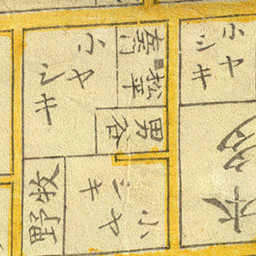 小ヤシキ
小ヤツキ
松平
男谷
牧野
小ヤシキ
本多